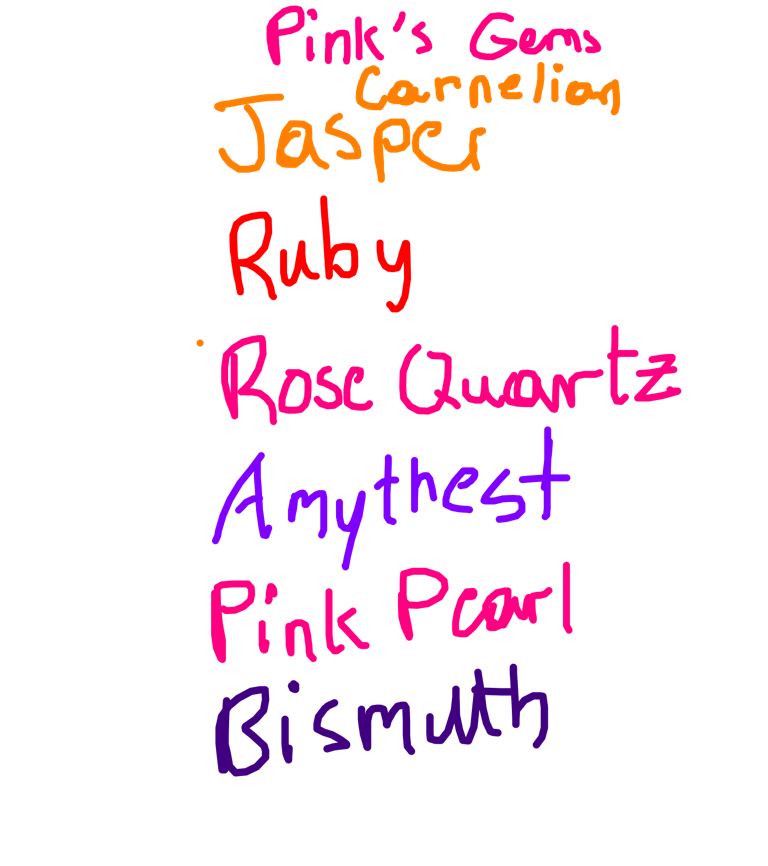 Pink's Gems
Carnelian
Jasper
Ruby
Rose Quartz
Amythest
Pink Pearl
Bismuth